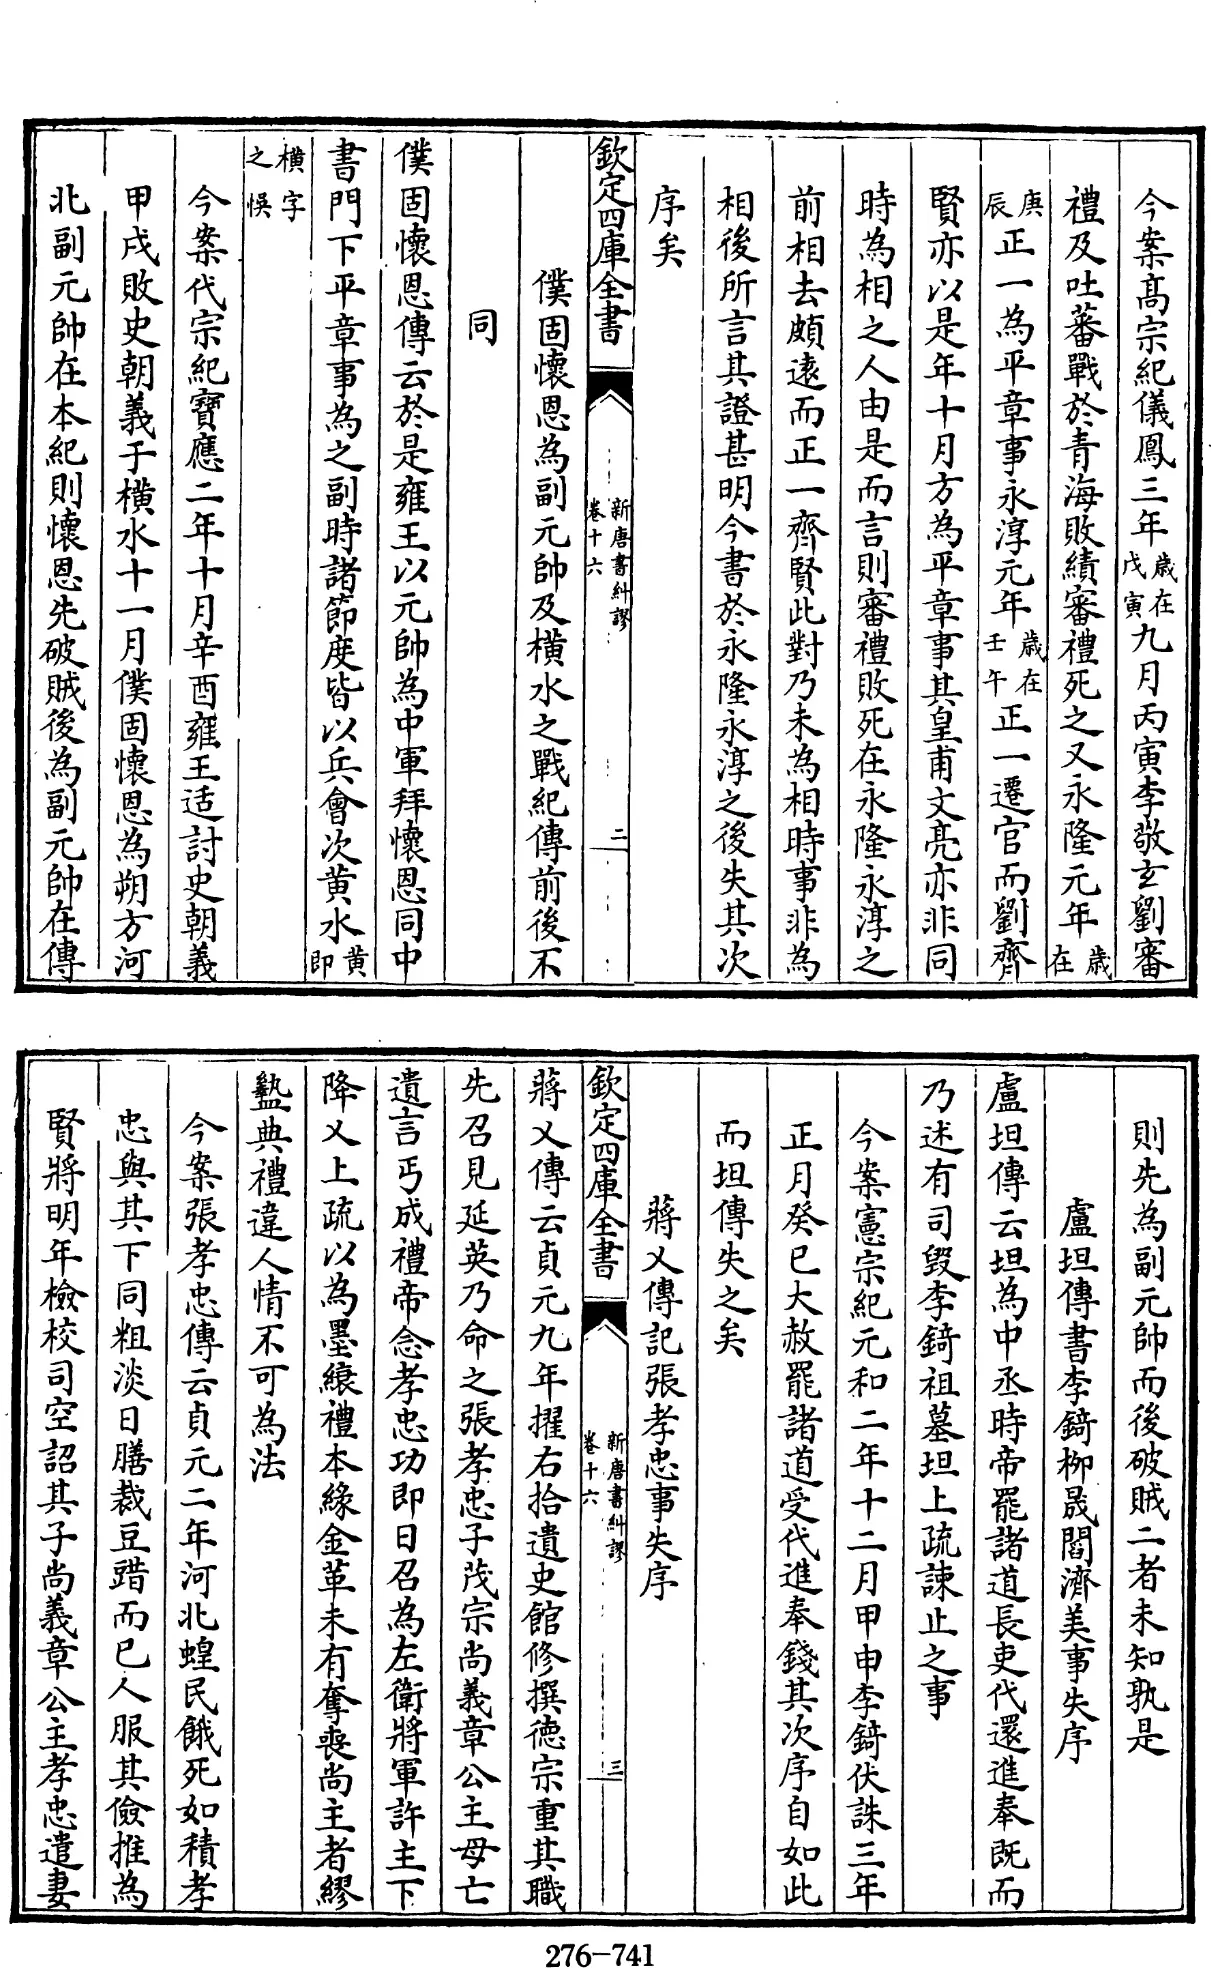 今案髙宗紀儀鳳三年歳在戊寅九月丙寅李敬玄劉審
禮及吐蕃戰於青海敗績審禮死之又永隆元年歳在
庚辰正一為平章事永淳元年歳在壬午正一遷官而劉齊
賢亦以是年十月方為平章事其皇甫文亮亦非同
時為相之人由是而言則審禮敗死在永隆永淳之
前相去頗遠而正一齊賢此對乃未為相時事非為
相後所言其證甚明今書於永隆永淳之後失其次
序矣
欽定四庫全書
新唐書糾謬
卷十六
二
僕固懷恩為副元帥及橫水之戰紀傳前後不
同
僕固懷恩傳云於是雍王以元帥為中軍拜懷恩同中
書門下平章事為之副時諸節度皆以兵會次黄水黄即
橫字之悞
今案代宗紀寶應二年十月辛酉雍王适討史朝義
甲戌敗史朝義于橫水十一月僕固懷恩為朔方河
北副元帥在本紀則懷恩先破賊後為副元帥在傳
則先為副元帥而後破賊二者未知孰是
盧坦傳書李錡栁晟閻濟美事失序
盧坦傳云坦為中丞時帝罷諸道長吏代還進奉既而
乃述有司毀李錡祖墓坦上疏諫止之事
今案憲宗紀元和二年十二月甲申李錡伏誅三年
正月癸巳大赦罷諸道受代進奉錢其次序自如此
而坦傳失之矣
蔣乂傳記張孝忠事失序
欽定四庫全書
新唐書糾謬
卷十六
三
蔣乂傳云貞元九年擢右拾遺史館修撰德宗重其職
先召見延英乃命之張孝忠子茂宗尚義章公主母亡
遺言丐成禮帝念孝忠功即日召為左衛將軍許主下
降乂上疏以為墨縗禮本緣金革未有奪喪尚主者繆
盭典禮違人情不可為法
今案張孝忠傳云貞元二年河北蝗民餓死如積孝
忠與其下同粗淡日膳裁豆䜺而已人服其儉推為
賢將明年檢校司空詔其子尚義章公主孝忠遣妻
276-741